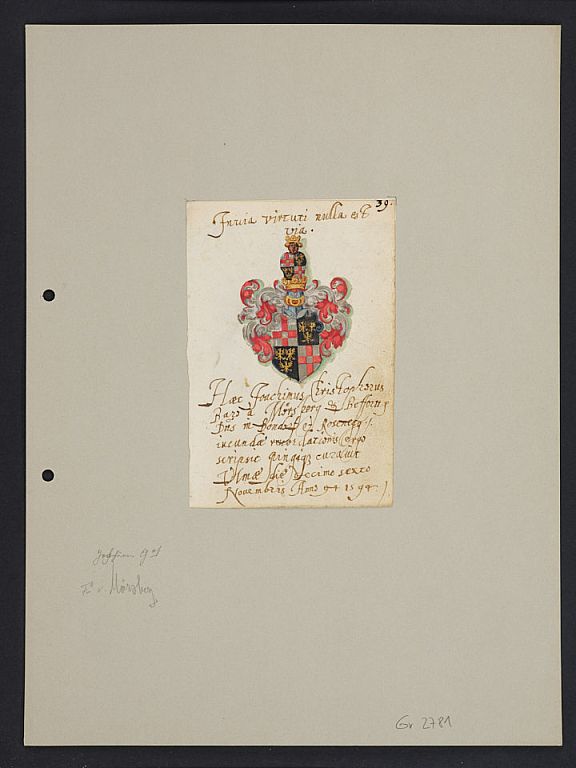 39.
Invia virtuti nulla est
via.
Haec Joachimus Christophorus
Baro à Mörsberg & Beffort
Dns in Bondorf et Rosenegg
iucundae recordationis ergo
scripsit pingiq; curavit
Ulmae die decimo sexto
Novembris Anno 94 1594.
v. Mörsberg
Gr. 2781